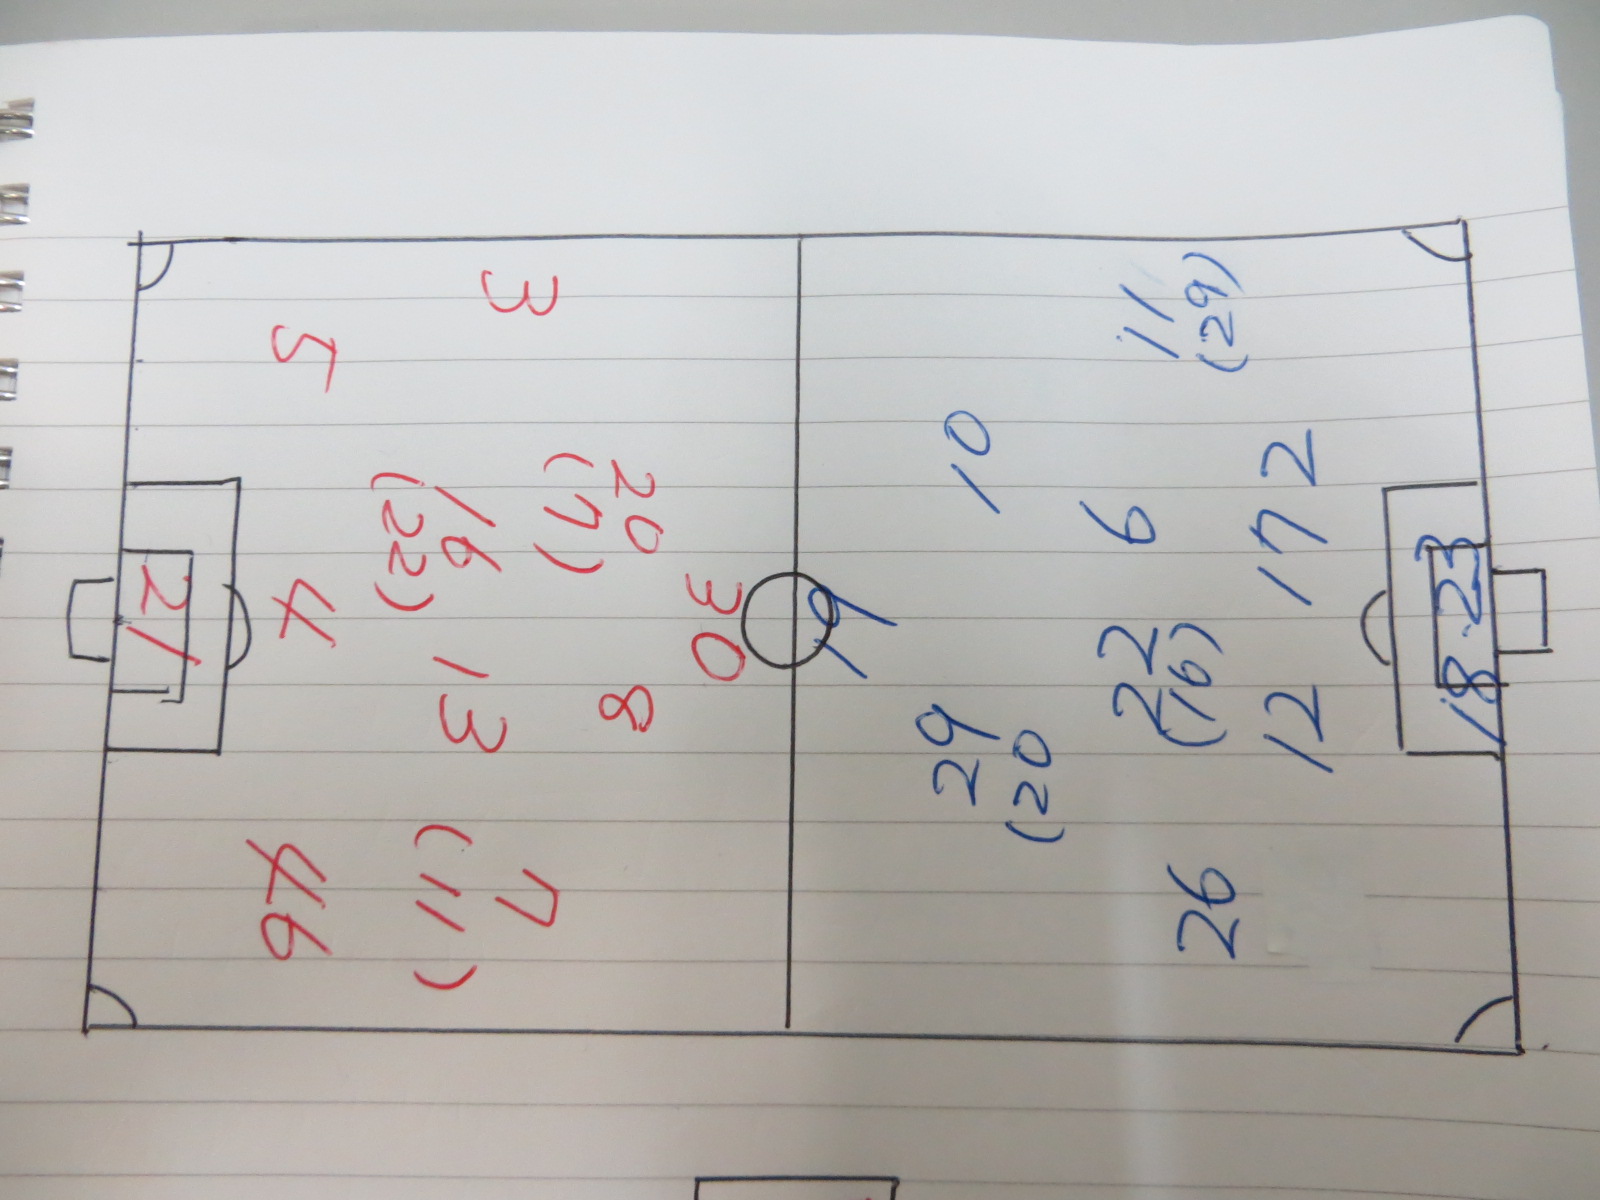 30
20 8
(7)
3 7
16 13
(22) (11)
5 4 46
21
19
29 10
(20
26 22 6 11
(16) (29)
12 17 2
18·23